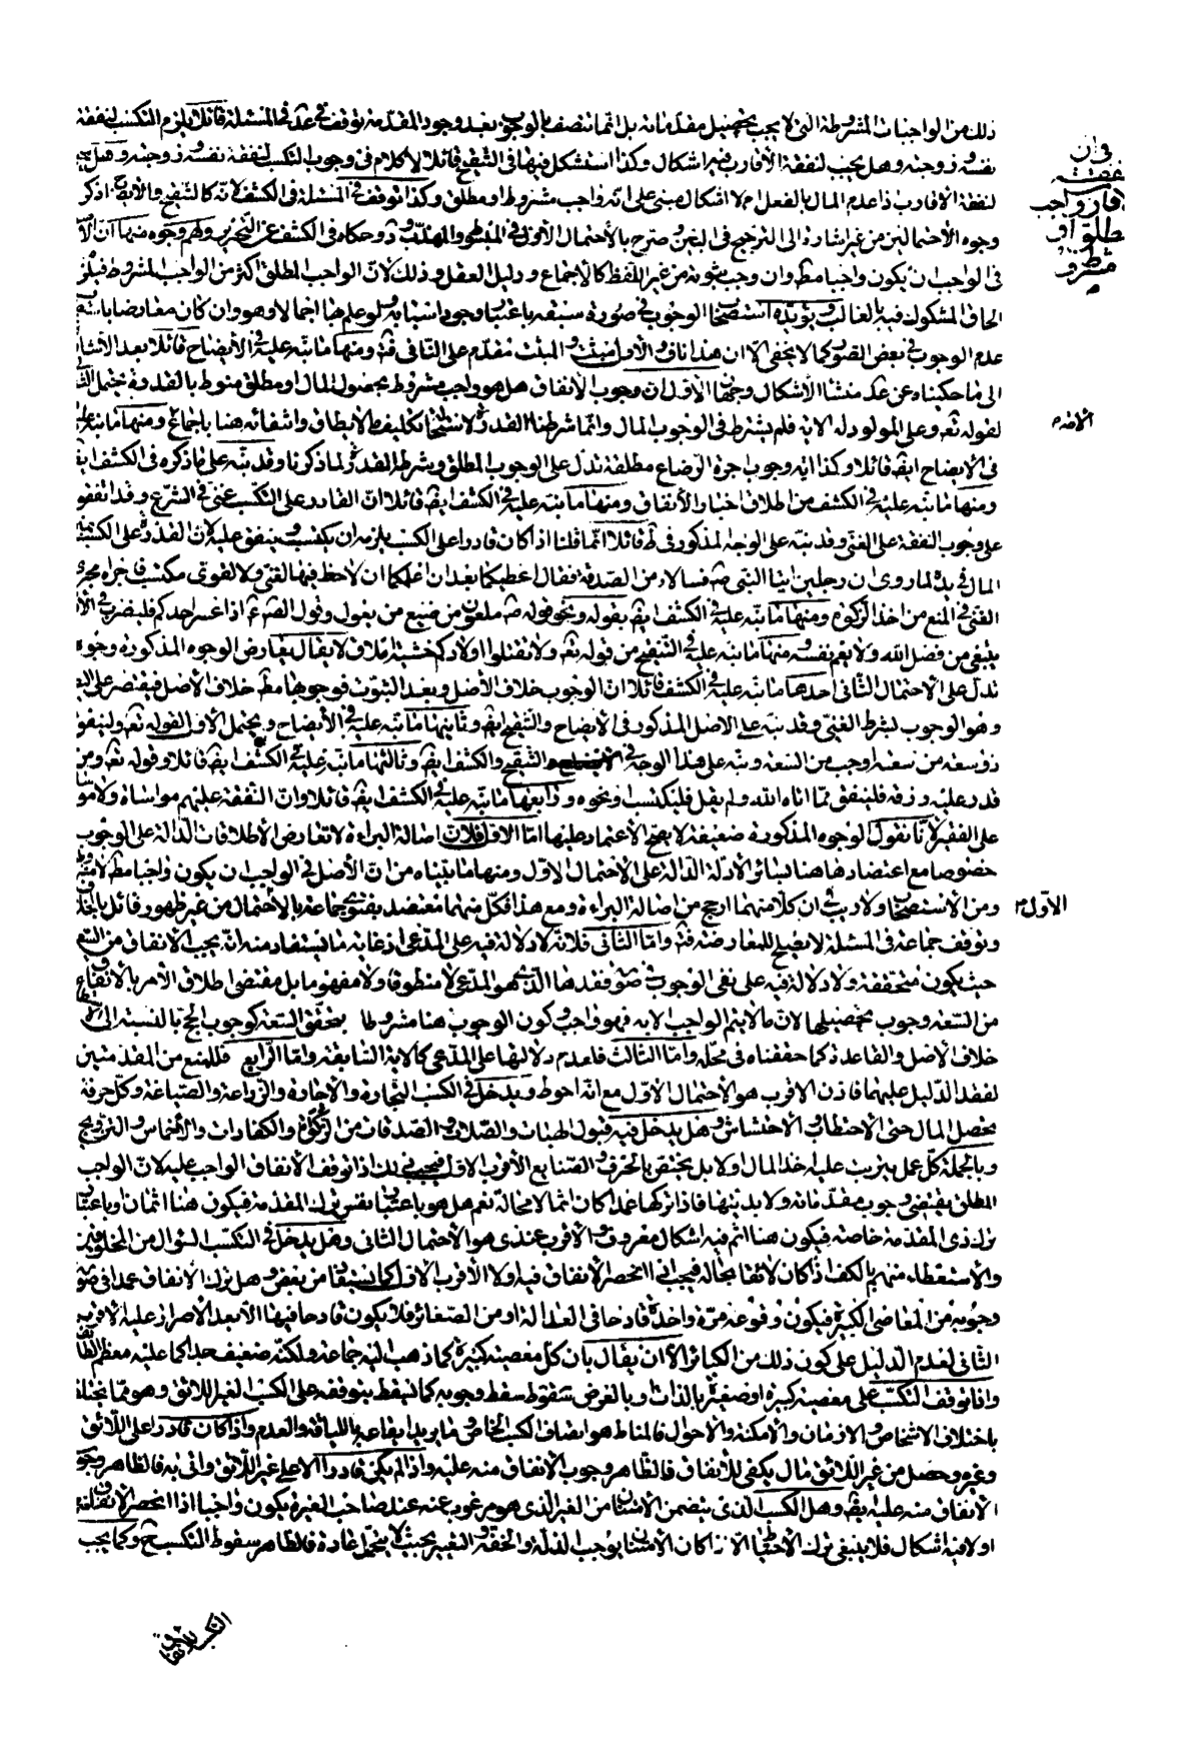 ذلك من الواجبات المشروطة التى لا يجب تحصيل مقدماته بل انما تتصف بالوجوب بعد وجود المقدمة توقف فى عد فى المسئلة قائلا يلزم التكسب لنفقة
نفسه وزوجته وهل يجب لنفقة الأقارب فيه اشكال وكذا استشكل فيها فى التنقيح قائلا لا كلام فى وجوب التكسب لنفقة نفسه وزوجته وهل يجب
لنفقة الاقارب ذا عدم المال بالفعل ام لا اشكال مبنى على انه واجب مشروط او مطلق وكذا توقف فى المسئلة فى الكشف لانه كالتنقيح والأيضاح اذكر
وجوه الاحتمالين من غير اشارة الى الترجيح فى البين و صرح بالأحتمال الأول فى المبسوط والمهذب و حكاه فى الكشف عن التحرير ولهم وجوه منها ان الأصل
فى الواجب ان يكون واجبا مطلقا وان وجب ثبوته من غير اللفظ كالأجماع و دليل العقل وذلك لان الواجب المطلق اكثر من الواجب المشروط فيلزم
الحاق المشكوك فيه بالغالب ويؤيده استصحاب الوجوب فى صورة سبقه باعتبار وجود اسبابه ولو علم هنا اجمالا وهو وان كان معارضا باستصحاب
عدم الوجوب فى بعض الصور كما لا يخفى الا ان هذا ناف والاول مثبت والمثبت مقدم على النافى فت ومنها ما نبه عليه فى الأيضاح قائلا بعد الأشارة
الى ما حكيناه عن عد منشأ الأشكال وجهان الأول ان وجوب الانفاق هل هو واجب مشروط بحصول المال او مطلق منوط بالقدرة يحتمل الثانى
لقوله تعم وعلى المولود له الاية فلم يشترط فى الوجوب المال وانما شرطنا القدرة لاستحالة تكليف ما لا يطاق وانتفائه هنا باجماع ومنها ما نبه عليه
فى الايضاح ايضا قائلا وكذا اية وجوب اجرة الرضاع مطلقة تدل على الوجوب المطلق وشرط القدرة لما ذكرنا وقد نبه على ما ذكره فى الكشف ايضا
ومنها ما نبه عليه فى الكشف من اطلاق اخبار الأنفاق ومنها ما نبه عليه فى الكشف ايضا قائلا ان القادر على التكسب غنى فى الشرع وقد اتفقوا
على وجوب النفقة على الغنى وقد نبه على الوجه المذكور فى ط قائلا انما قلنا اذا كان قادرا على الكسب يلزمه ان يكتسب وينفق عليه لان القدرة على الكسب بمنزلة
المال فى يده لما روى ان رجلين اتيا النبى ص فسألاه من الصدقة فقال اعطيكما بعد ان اعلمكما ان لا حظ فيها لغنى ولا لقوى مكتسب فاجراه مجرى
الغنى فى المنع من اخذ الزكوة ومنها ما نبه عليه فى الكشف ايضا بقوله ونحو قوله ص ملعون من ضيع من يعول وقول الص ع اذا عسر احدكم فليضرب فى الأرض
يبتغى من فضل الله ولا يغم نفسه ومنها ما نبه عليه فى التنقيح من قوله تعم ولا تقتلوا اولادكم خشية املاق لا يقال يعارض الوجوه المذكورة وجوه
تدل على الاحتمال الثانى احدها ما نبه عليه فى الكشف قائلا ان الوجوب خلاف الأصل وبعد الثبوت فوجوبها مطلقا خلاف الاصل فيقتصر على
وهو الوجوب لشرط الغنى وقد نبه على الاصل المذكور فى الايضاح والتنقيح ايضا وثانيها ما نبه عليه فى الأيضاح ويحتمل الأول لقوله تعم ولينفق
ذو سعة من سعته اوجب من السعة ونبه على هذا الوجه فى التنقيح والكشف ايضا وثالثها ما نبه عليه فى الكشف ايضا قائلا وقوله تعم ومن
قدر عليه رزقه فلينفق مما اتاه الله ولم يقل فليكتسب ونحوه ورابعها ما نبه عليه فى الكشف ايضا قائلا وان النفقة عليهم مواساة ولا مواساة
على الفقير لانا نقول الوجوه المذكورة ضعيفة لا يصح الأعتماد عليها اما الاول فلان اصالة البراءة لا تعارض الأطلاقات الدالة على الوجوب
خصوصا مع اعتضادها هنا بسائر الأدلة الدالة على الاحتمال الاول ومنها ما بيناه من ان الأصل فى الواجب ان يكون واجبا مطلقا
ومن الأستصحاب ولا ريب فى ان كلا منهما ارجح من اصالة البراءة ومع هذا فكل منهما معتضد بفتوى جماعة بالأحتمال من غير ظهور قائل بالخلاف
وتوقف جماعة فى المسئلة لا يصلح للمعارضة فت واما الثانى فلانه لا دلالة فيه على المدعى اذ غاية ما يستفاد منه انه يجب الانفاق من السعة
حيث يكون متحققة ولا دلالة فيه على نفى الوجوب فى صورة فقدها الذى هو المدعى لا منطوقا ولا مفهوما بل مقتضى اطلاق الأمر بالأنفاق
من السعة وجوب تحصيلها لان ما لا يتم الواجب الا به فهو واجب وكون الوجوب هنا مشروطا بتحقق السعة كوجوب الحج بالنسبة الى
خلاف الأصل والقاعدة كما حققناه فى محله واما الثالث فلعدم دلالتها على المدعى كالاية السابقة واما الرابع فللمنع من المقدمتين
لفقد الدليل عليهما فاذن الاقرب هو الأحتمال الأول مع انه احوط ويدخل فى الكسب التجارة والأجارة والزراعة والصناعة وكل حرفة
يحصل المال حتى الاحتطاب والأحتشاش وهل يدخل فيه قبول الهبات والصلات والصدقات من الزكوة والكفارات والأخماس والتزويج
وبالجملة كل عمل يترتب عليه اخذ المال او لا بل يختص بالحرف والصنايع الأقرب الاول فيجب ذلك اذا توقف الأنفاق الواجب عليه لان الواجب
المطلق يقتضى وجوب مقدماته ولا بدليتها فاذا تركها عمدا كان اثما لا محالة نعم هل هو باعتبار نفس ترك المقدمة فيكون هنا اثمان او باعتبار
ترك ذى المقدمة خاصة فيكون هنا اثم فيه اشكال معروف والأقرب عندى هو الأحتمال الثانى وهل يدخل فى التكسب السؤال من المخلوقين
والاستعطاء منهم بالكف اذا كان لائقا بحاله فيجب اذا انحصر الأنفاق فيه او لا الأقرب الاول كما يستفاد من بعض وهل ترك الأنفاق عمدا فى صورة
وجوبه من المعاصى الكبيرة فيكون وقوعه مرة واحدة قادحا فى العدالة او من الصغائر فلا يكون قادحا فيها الا بعد الأصرار عليه الأقرب
الثانى لعدم الدليل على كون ذلك من الكبائر الا ان يقال بان كل معصية كبيرة كما ذهب اليه جماعة ولكنه ضعيف جدا كما عليه معظم
واذا توقف التكسب على معصية كبيرة او صغيرة بالذات وبالعرض سقط وجوبه كما يسقط بتوقفه على الكسب الغير اللائق وهو مما يختلف
باختلاف الاشخاص والازمان والأمكنة والأحوال فالمناط هو اتصاف الكسب الخاص ما يريد ايقاعه باللياقة والعدم واذا كان قادرا على اللائق
وغيره وحصل من غير اللائق مال يكفى للأنفاق فالظاهر وجوب الأنفاق منه عليه واذا لم يكن قادرا الا على غير اللائق واتى به فالظاهر وجوب
الأنفاق منه عليه ايضا وهل الكسب الذى يتضمن الأمتنان من الغير الذى هو مرغوب عنه عند صاحب الغيرة يكون واجبا اذا انحصر الأنفاق فيه
او لا فيه اشكال فلا ينبغى ترك الأحتياط الا اذا كان الأمتنان يوجب لذلة والخفة والتعيير بحيث لا يتحمل عادة فالظاهر سقوط التكسب ح وكما يجب
فى ان
نفقة
الاقارب واجب
مطلق او
مشروط
الاول
التكسب للانفاق